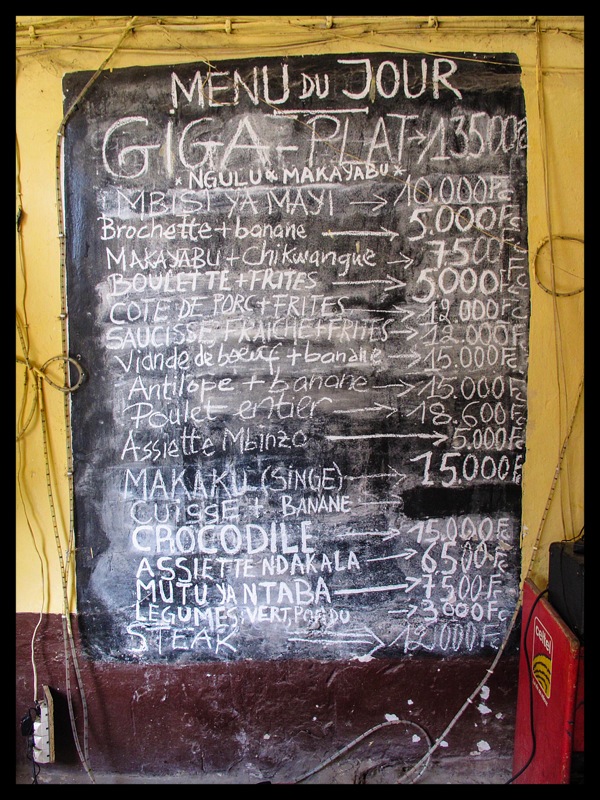 MENU DU JOUR
GIGA-PLAT → 13500Fc
* NGULU & MAKAYABU *
MBISI YA MAYI → 10.000Fc
Brochette + banane → 5.000Fc
MAKAYABU + Chikwangue → 7500Fc
BOULETTE + FRITES → 5000Fc
COTE DE PORC + FRITES → 12.000Fc
SAUCISSE FRAICHE + FRITES → 12.000Fc
Viande de boeuf + banane → 15.000Fc
Antilope + banane → 15.000Fc
Poulet entier → 18.600Fc
Assiette Mbinzo → 5.000Fc
MAKAKU (SINGE) → 15.000Fc
CUISSE + BANANE →
CROCODILE → 15.000Fc
ASSIETTE NDAKALA → 6500Fc
MUTU YA NTABA → 7500Fc
LEGUMES: VERT, → 3000Fc
STEAK → 12000Fc
Celtel